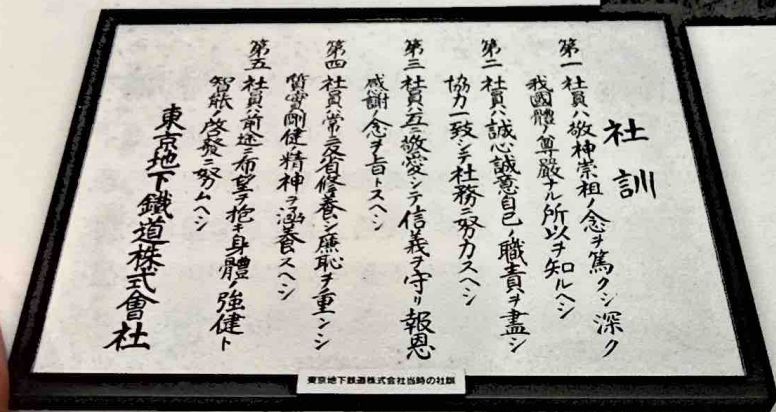 社訓
第一 社員ハ敬神崇祖ノ念ヲ篤クシ深ク
我國體ノ尊厳ナル所以ヲ知ルヘシ
第二 社員ハ誠心誠意自己ノ職責ヲ盡シ
協力一致シテ社務ニ努力スヘシ
第三 社員ハ互ニ敬愛シテ信義ヲ守リ報恩
感謝ノ念ヲ旨トスヘシ
第四 社員ハ常ニ反省修養シ廉恥ヲ重ンシ
質實剛健精神ヲ涵養スヘシ
第五 社員ハ前途ニ希望ヲ抱キ身體ノ強健ト
智能ノ啓發ニ努ムヘシ
東京地下鐵道株式會社
東京地下鉄道株式会社当時の社訓